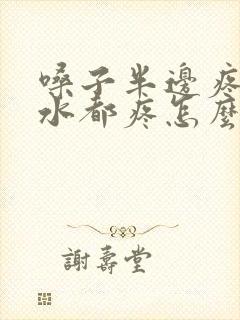 嗓子半邊疼
水都疼怎麼
謝壽堂